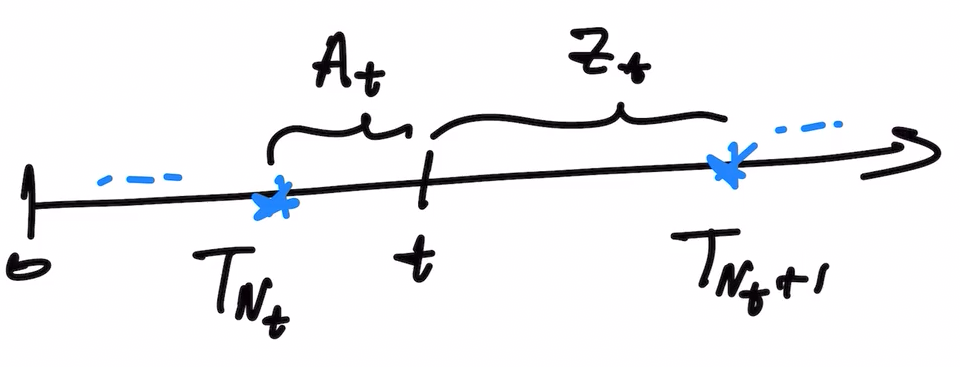 A_t Z_t
0 T_{N_t} t T_{N_t+1}